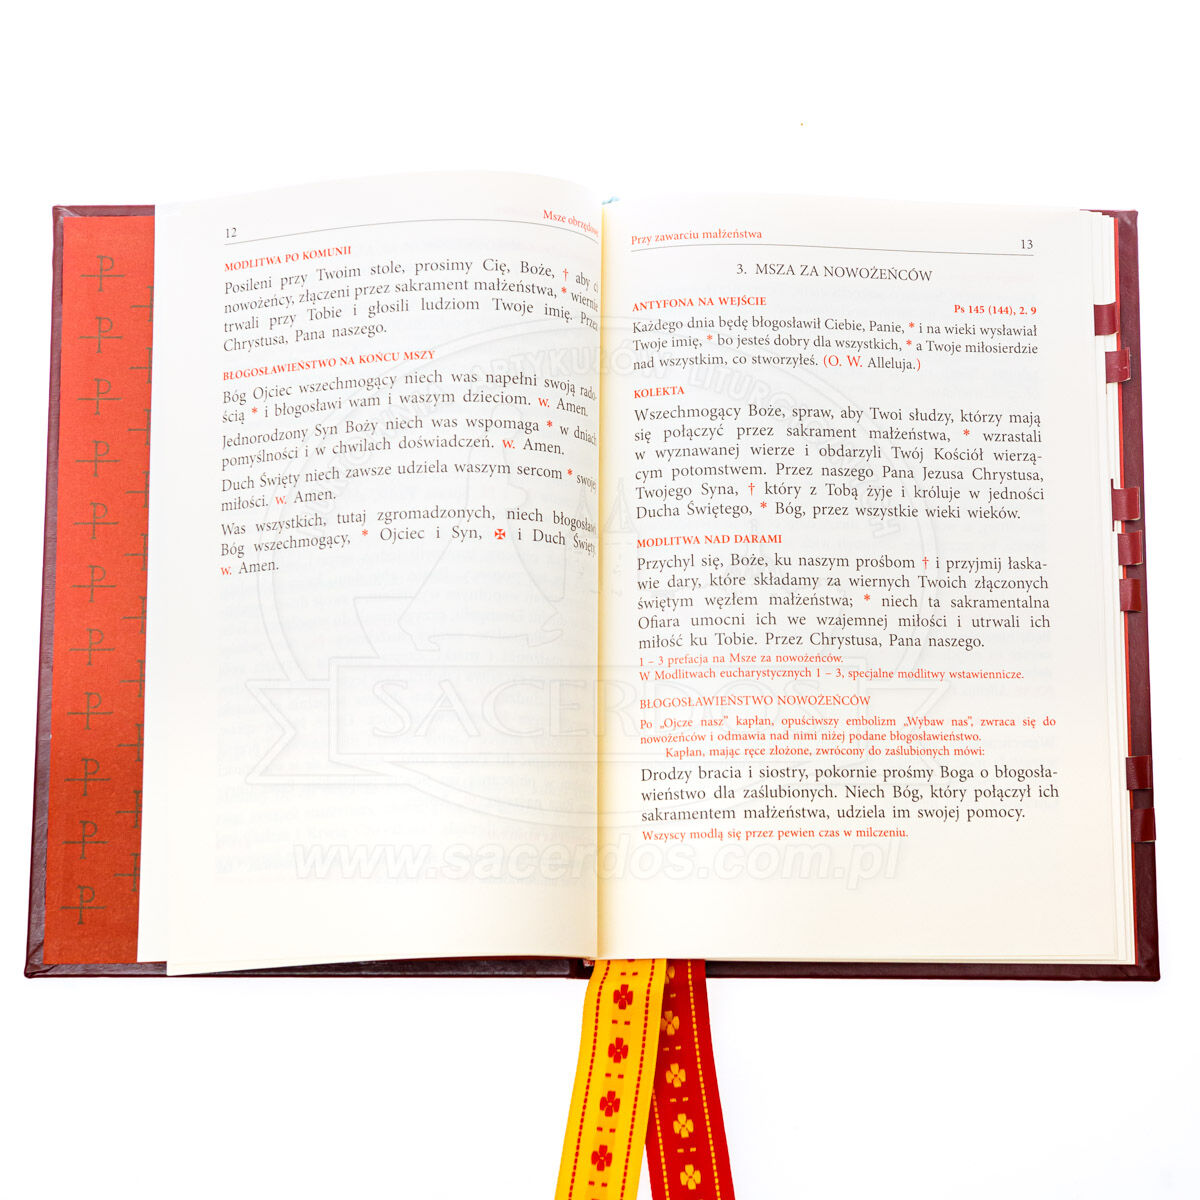 12
Msze obrzędowe
MODLITWA PO KOMUNII
Posileni przy Twoim stole, prosimy Cię, Boże, † aby ci
nowożeńcy, złączeni przez sakrament małżeństwa, * wiernie
trwali przy Tobie i głosili ludziom Twoje imię. Przez
Chrystusa, Pana naszego.
BŁOGOSŁAWIEŃSTWO NA KOŃCU MSZY
Bóg Ojciec wszechmogący niech was napełni swoją rado-
ścią * i błogosławi wam i waszym dzieciom. w. Amen.
Jednorodzony Syn Boży niech was wspomaga * w dniach
pomyślności i w chwilach doświadczeń. w. Amen.
Duch Święty niech zawsze udziela waszym sercom * swojej
miłości. w. Amen.
Was wszystkich, tutaj zgromadzonych, niech błogosławi
Bóg wszechmogący, * Ojciec i Syn, ✠ i Duch Święty.
w. Amen.
Przy zawarciu małżeństwa
13
3. MSZA ZA NOWOŻEŃCÓW
ANTYFONA NA WEJŚCIE Ps 145 (144), 2. 9
Każdego dnia będę błogosławił Ciebie, Panie, * i na wieki wysławiał
Twoje imię, * bo jesteś dobry dla wszystkich, * a Twoje miłosierdzie
nad wszystkim, co stworzyłeś. (O. W. Alleluja.)
KOLEKTA
Wszechmogący Boże, spraw, aby Twoi słudzy, którzy mają
się połączyć przez sakrament małżeństwa, * wzrastali
w wyznawanej wierze i obdarzyli Twój Kościół wierzą-
cym potomstwem. Przez naszego Pana Jezusa Chrystusa,
Twojego Syna, † który z Tobą żyje i króluje w jedności
Ducha Świętego, * Bóg, przez wszystkie wieki wieków.
MODLITWA NAD DARAMI
Przychyl się, Boże, ku naszym prośbom † i przyjmij łaska-
wie dary, które składamy za wiernych Twoich złączonych
świętym węzłem małżeństwa; * niech ta sakramentalna
Ofiara umocni ich we wzajemnej miłości i utrwali ich
miłość ku Tobie. Przez Chrystusa, Pana naszego.
1 – 3 prefacja na Msze za nowożeńców.
W Modlitwach eucharystycznych 1 – 3, specjalne modlitwy wstawiennicze.
BŁOGOSŁAWIEŃSTWO NOWOŻEŃCÓW
Po „Ojcze nasz” kapłan, opuściwszy embolizm „Wybaw nas”, zwraca się do
nowożeńców i odmawia nad nimi niżej podane błogosławieństwo.
Kapłan, mając ręce złożone, zwrócony do zaślubionych mówi:
Drodzy bracia i siostry, pokornie prośmy Boga o błogosła-
wieństwo dla zaślubionych. Niech Bóg, który połączył ich
sakramentem małżeństwa, udziela im swojej pomocy.
Wszyscy modlą się przez pewien czas w milczeniu.
SACERDOS
www.sacerdos.com.pl